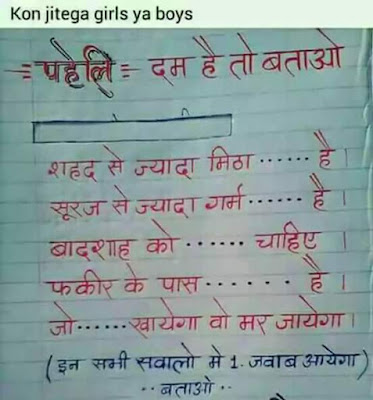 Kon jitega girls ya boys
= पहेलि = दम है तो बताओ
शहद से ज्यादा मिठा ...... है ।
सूरज से ज्यादा गर्म ...... है ।
बादशाह को ...... चाहिए ।
फकीर के पास ...... है ।
जो......खायेगा वो मर जायेगा ।
(इन सभी सवालो मे 1. जवाब आयेगा)
..बताओ..